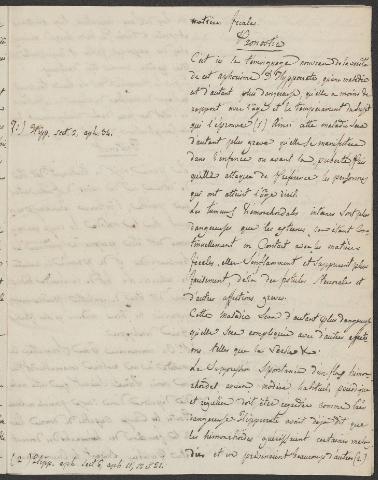 matière fécales.
Pronostic
C'est ici le témoignage nouveau de la vérité
de cet aphorisme d'Hyppocrate qu'une maladie
est d'autant plus dangereuse, qu'elle a moins de
rapport avec l'age et le temperament du sujet
qui l'éprouve (1) Ainsi cette maladie sera
(1) Hipp. sect. 2. aph. 34.
d'autant plus grave qu'elle se manifestera
dans l'enfance ou avant la puberté
qu'elle attaque de préférence les personnes
qui ont atteint l'age viril.
Les tumeurs hémorrhoidales internes sont plus
dangereuses que les externes, étant
continuellement en Contact avec les matières
fécales, elles s'enflamment et suppurent plus
facilement, delà des fistules stercorales et
d'autres affections graves.
Cette maladie sera d'autant plus dangereuse
qu'elle sera compliquée avec d'autres affecti
ons, telles que la vérole &.
La suppression spontanée d'un flux hemor
rhoidal encore modéré habituel, periodique
et régulier doit être regardée comme très
dangereuse hippocrate avoit déja dit que
les hémorrhoides guérissent certaines mala
dies et en préviennent beaucoup d'autres (2)
(2) Hipp. aph. sect. 6, aph. 11, 12 et 21.